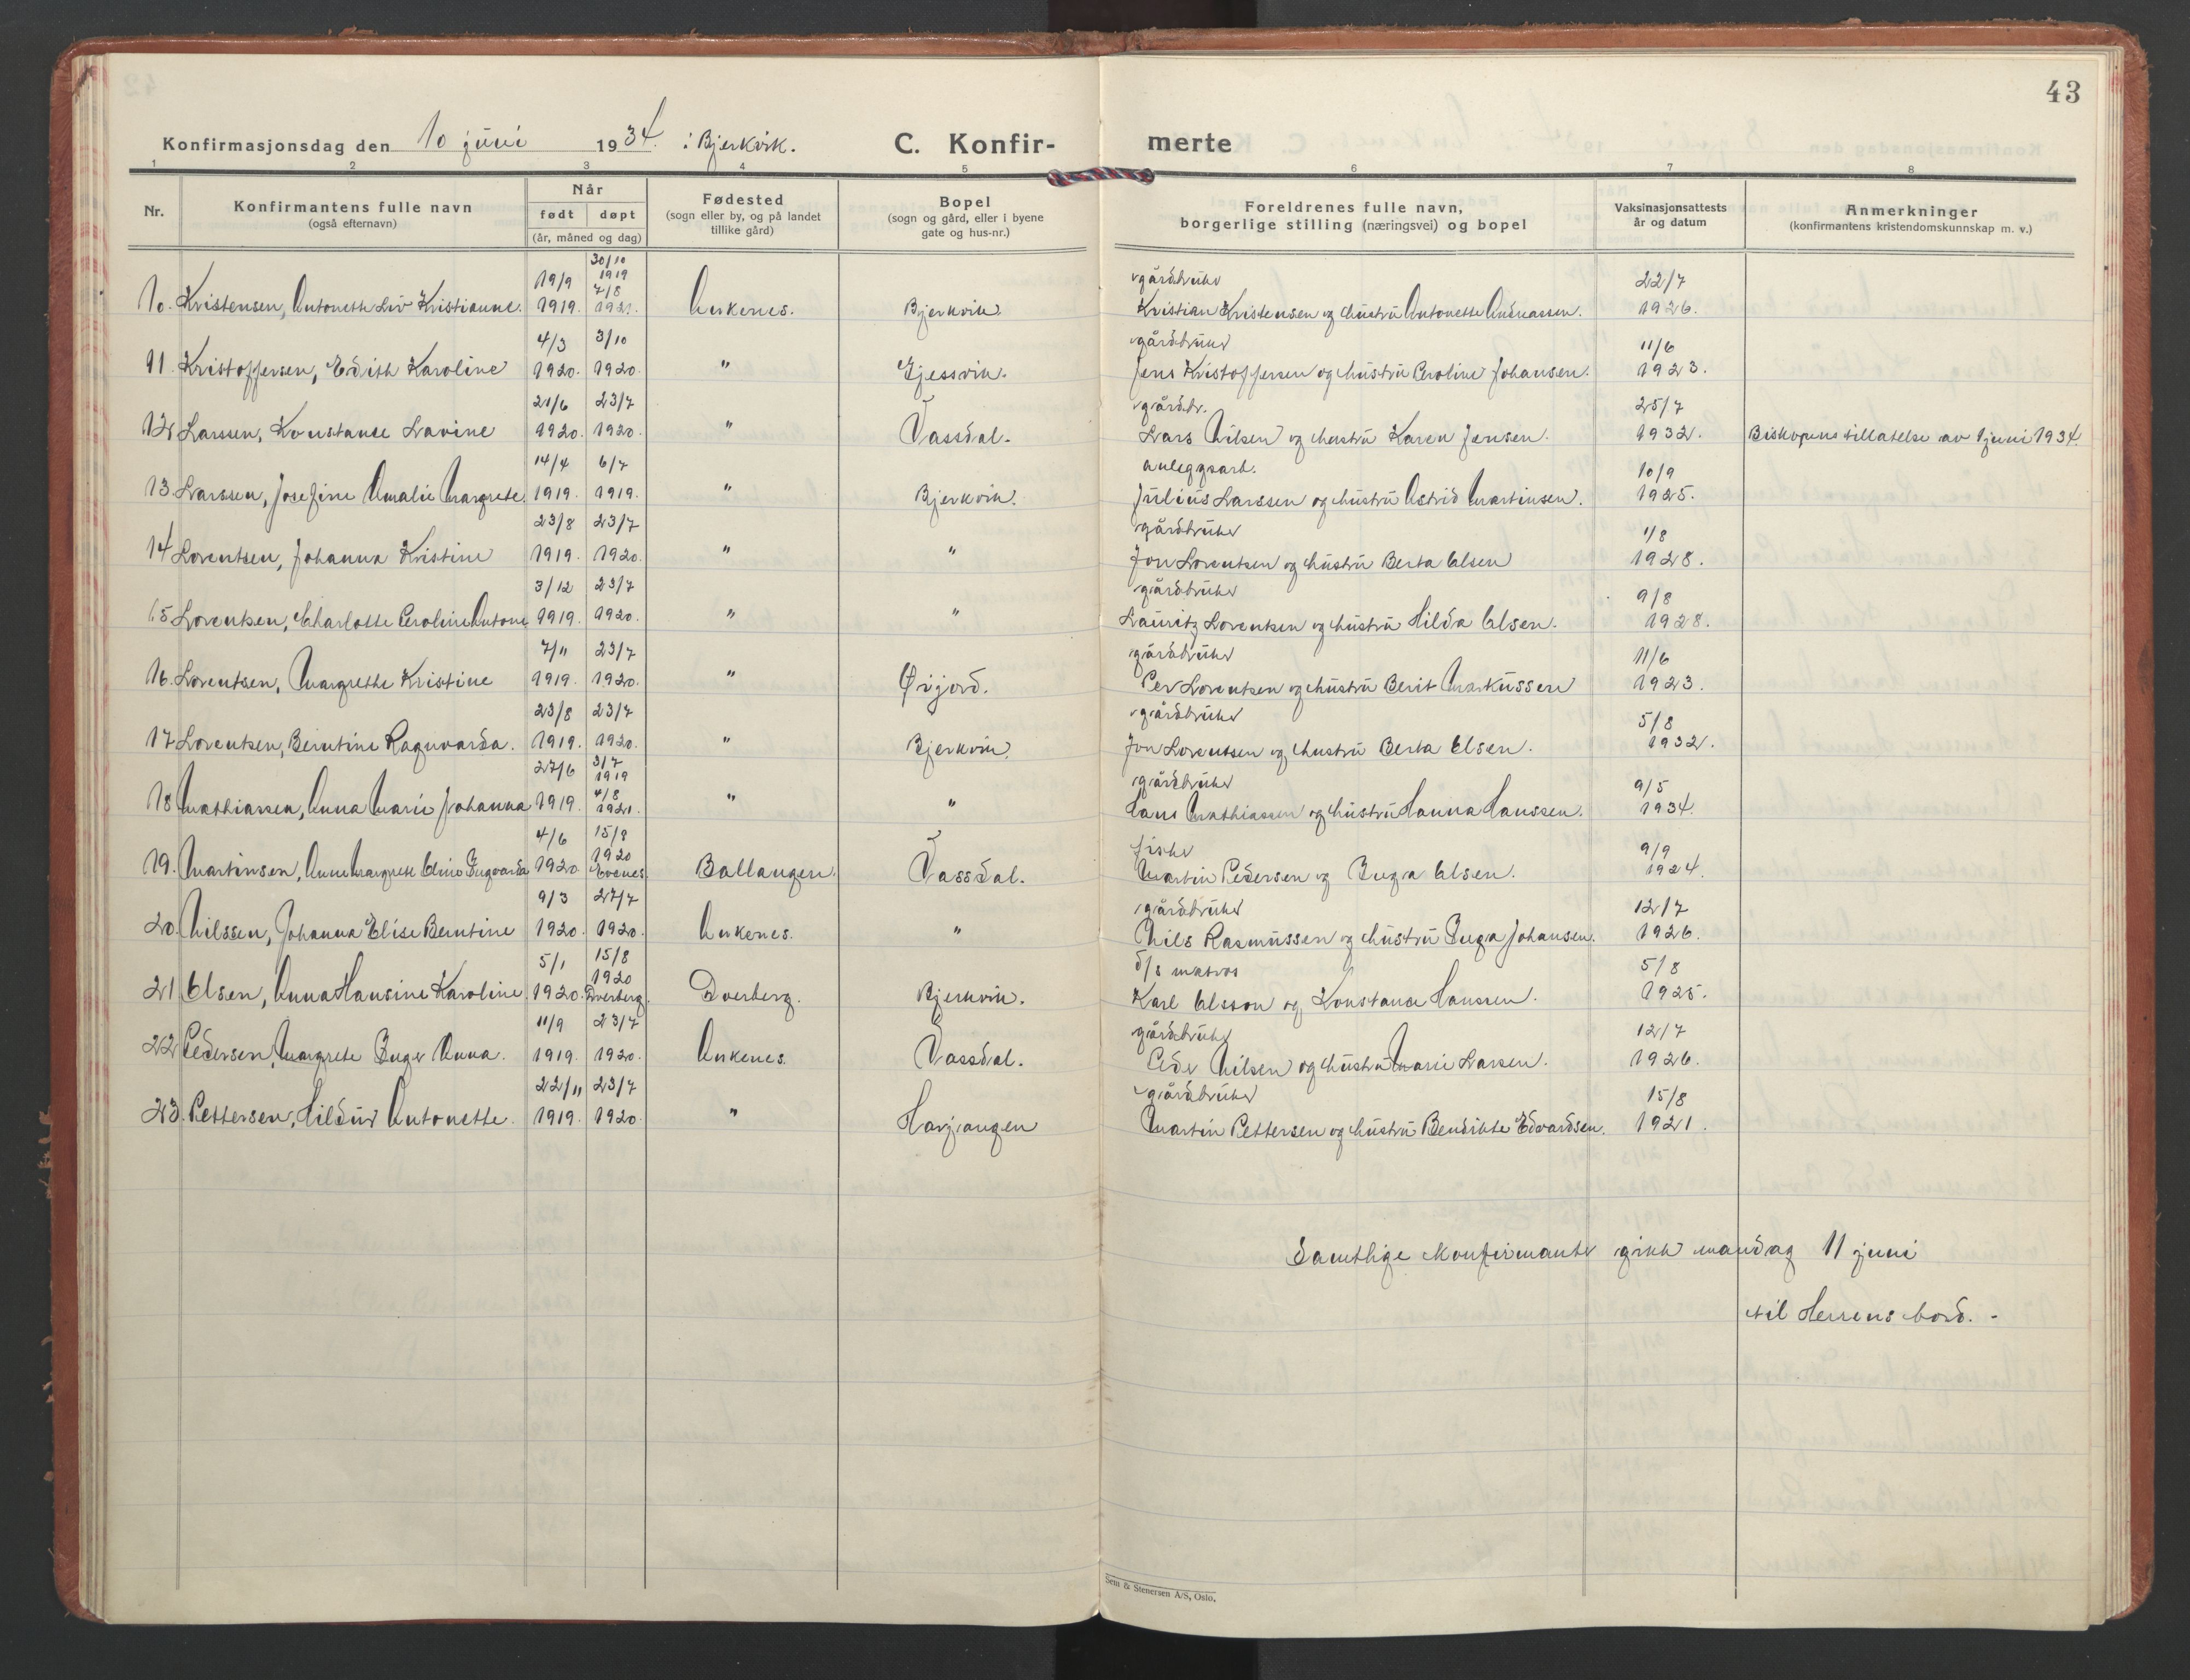 43
Konfirmasjonsdag den 10 juni 1934. i Bjerkvik. C. Konfirmerte
1 2 3 4 5 6 7 8
Nr. Konfirmantens fulle navn (også efternavn) Når født døpt (år, måned og dag) Fødested (sogn eller by, og på landet tillike gård) Bopel (sogn og gård, eller i byene gate og hus-nr.) Foreldrenes fulle navn, borgerlige stilling (næringsvei) og bopel Vaksinasjonsattests år og datum Anmerkninger (konfirmantens kristendomskunnskap m. v.)
10. Kristensen, Antonette Liv Kristianne. 19/9 1919. 30/10 1919 7/8 1921. Ankenes. Bjerkvik. gårdbruker Kristian Kristensen og hustru Antonette Andreassen. 22/7 1926.
11. Kristoffersen, Edith Karoline 4/3 1920. 3/10 1920. " Gjessvik. gårdbruker Jens Kristoffersen og hustru Peroline Johansen. 11/6 1923.
12 Larssen, Konstanse Lavine 21/6 1920. 23/7 1920. " Vassdal. gårdbr. Lars Nilsen og hustru Karen Jensen. 25/7 1932. Biskopens tillatelse av 1 juni 1934.
13. Larssen, Josefine Amalie Margrete. 14/4 1919. 6/7 1919. " Bjerkvik. anleggsarb. Julius Larssen og hustru Astrid Martinsen. 10/9 1925.
14 Lorentsen, Johanna Kristine 23/8 1919. 23/7 1920. " " gårdbruker Jon Lorentsen og hustru Berta Olsen 1/8 1928.
15 Lorentsen, Charlotte Peroline Antone 3/12 1919. 23/7 1920. " " gårdbruker Lauritz Lorentsen og hustru Hilda Olsen. 9/8 1928.
16. Lorentsen, Margrethe Kristine 7/11 1919. 23/7 1920. " Øijord. gårdbruker Per Lorentsen og hustru Berit Markussen 11/6 1923.
17 Lorentsen, Berntine Ragnvarda. 23/8 1919. 23/7 1920. " Bjerkvik. gårdbruker Jon Lorentsen og hustru Berta Olsen. 5/8 1932.
18 Mathiassen, Anna Marie Johanna 27/6 1919. 3/7 1919 4/8 1921. " " gårdbruker Hans Mathiassen og hustru Hanna Hanssen. 9/5 1934.
19. Martinsen, Anne Margrete Ingvarda 4/6 1920. 15/8 1920 Evenes Ballangen. Vassdal. fisker Martin Pedersen og Inga Olsen. 9/9 1924.
20. Nilssen, Johanna Elise Berntine 9/3 1920. 27/7 1920. Ankenes. " gårdbruker Nils Rasmussen og hustru Inga Johansen. 12/7 1926.
21 Olsen, Anna Hansine Karoline 5/1 1920. 15/8 1920 Dverberg. Dverberg. Bjerkvik. d/s matros Karl Olsson og Konstanse Hanssen. 5/8 1925.
22 Pedersen, Margrete Inger Anna. 11/9 1919. 23/7 1920. Ankenes. Vassdal. gårdbruker Peder Nilsen og hustru Marie Larsen. 12/7 1926.
23. Pettersen, Hildur Antonette. 22/11 1919. 23/7 1920. " Harjangen gårdbruker Martin Pettersen og hustru Bendikte Edvardsen. 15/8 1921.
Samtlige konfirmanter gikk mandag 11 juni
til Herrens bord. -
Sem & Stenersen A/S, Oslo.